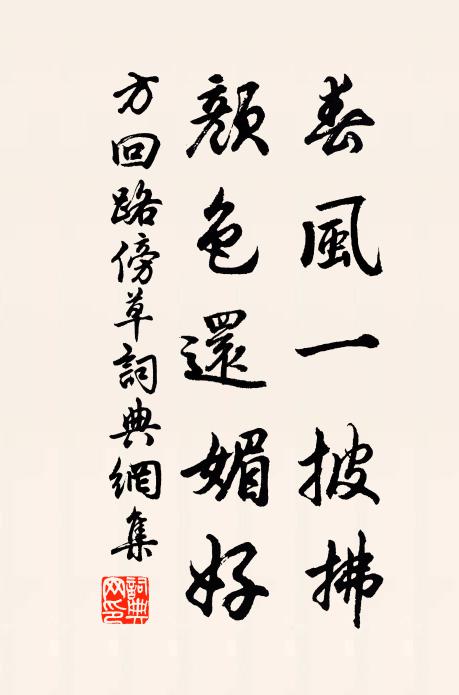 春風一披拂
顏色還媚好
方回路傍草詞典網集
詞典網印